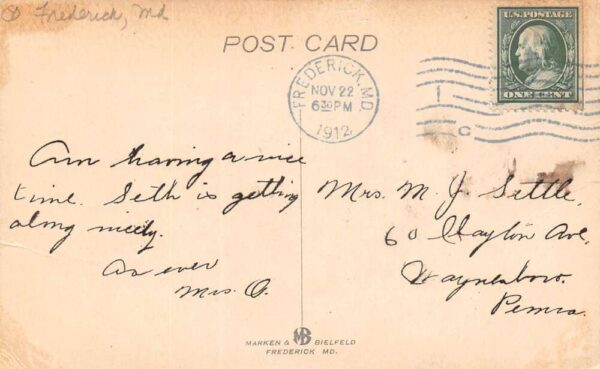 Frederick, Md
POST CARD
U.S. POSTAGE
ONE CENT
FREDERICK, MD.
NOV 22
6 30 PM
1912
C
Am having a nice
time. Seth is getting
along nicely.
As ever
Mrs. O.
Mrs. M. J. Settle,
60 Clayton Ave,
Waynesboro.
Penna.
MARKEN & MB BIELFELD
FREDERICK MD.